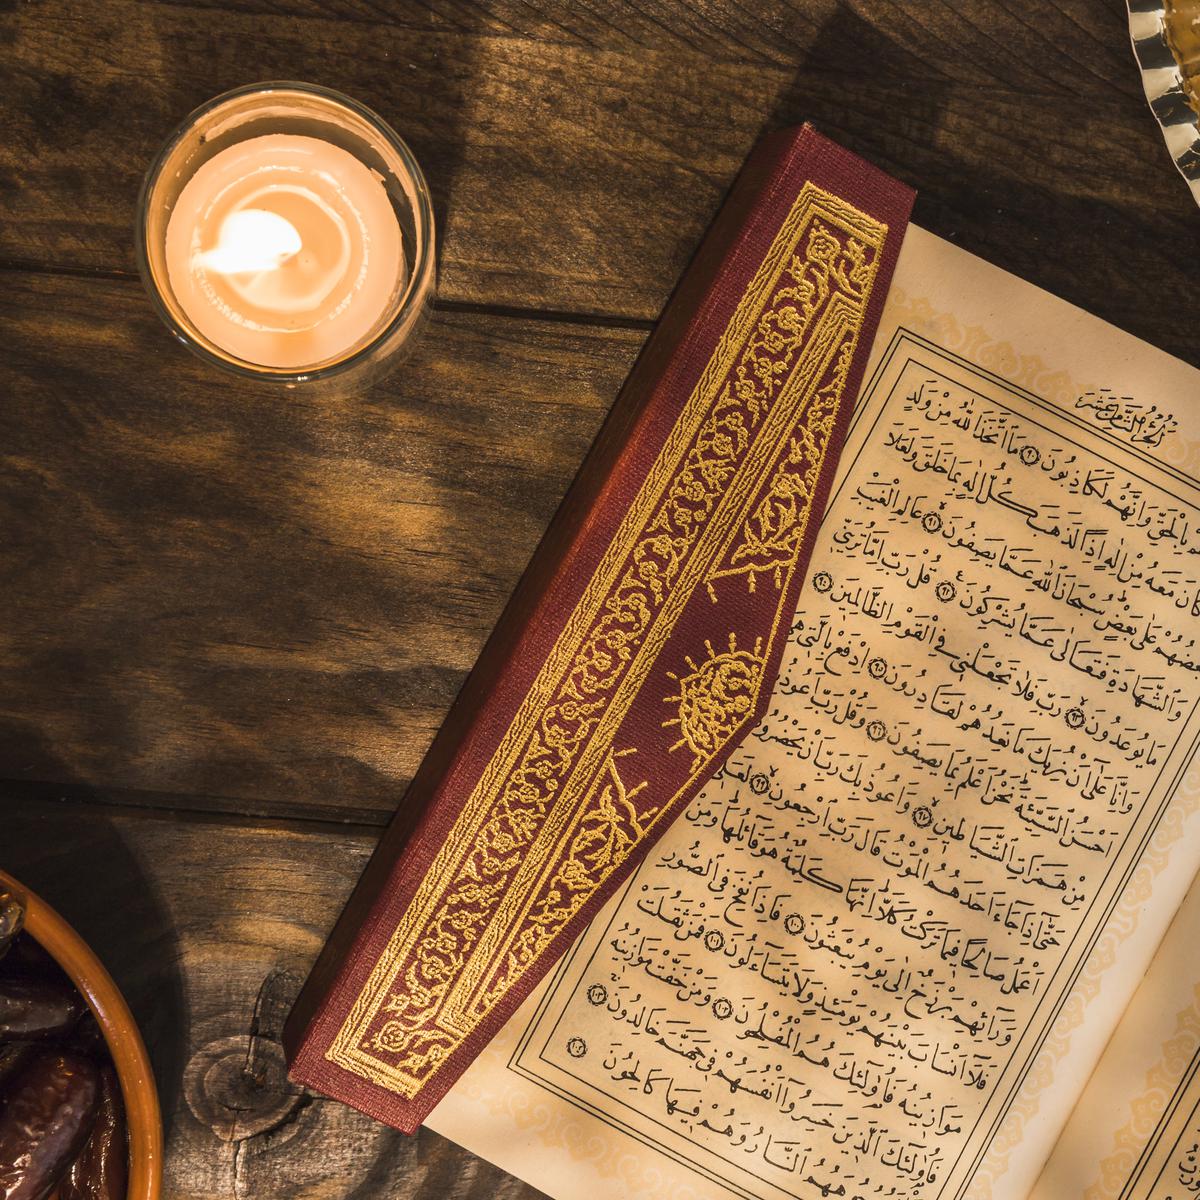 الجزء الثامن عشر
بِالْحَقِّ وَاِنَّهُمْ لَكَاذِبُونَ ٩٠ مَا اتَّخَذَ اللّٰهُ مِنْ وَلَدٍ
كَانَ مَعَهُ مِنْ اِلٰهٍ اِذًا لَذَهَبَ كُلُّ اِلٰهٍ بِمَا خَلَقَ وَلَعَلَا
عَلٰى بَعْضٍ سُبْحَانَ اللّٰهِ عَمَّا يَصِفُونَ ٩١ عَالِمِ الْغَيْبِ
وَالشَّهَادَةِ فَتَعَالٰى عَمَّا يُشْرِكُونَ ٩٢ قُلْ رَبِّ اِمَّا تُرِيَنّٖى
مَا يُوعَدُونَ ٩٣ رَبِّ فَلَا تَجْعَلْنٖى فِى الْقَوْمِ الظَّالِمٖينَ ٩٤
وَاِنَّا عَلٰٓى اَنْ نُرِيَكَ مَا نَعِدُهُمْ لَقَادِرُونَ ٩٥ اِدْفَعْ بِالَّتٖى هِىَ
اَحْسَنُ السَّيِّئَةَ نَحْنُ اَعْلَمُ بِمَا يَصِفُونَ ٩٦ وَقُلْ رَبِّ اَعُوذُ
مِنْ هَمَزَاتِ الشَّيَاطٖينِ ٩٧ وَاَعُوذُ بِكَ رَبِّ اَنْ يَحْضُرُونِ
حَتّٰٓى اِذَا جَٓاءَ اَحَدَهُمُ الْمَوْتُ قَالَ رَبِّ ارْجِعُونِ ٩٩ لَعَلّٖى
اَعْمَلُ صَالِحًا فٖيمَا تَرَكْتُ كَلَّا اِنَّهَا كَلِمَةٌ هُوَ قَٓائِلُهَا وَمِنْ
وَرَٓائِهِمْ بَرْزَخٌ اِلٰى يَوْمِ يُبْعَثُونَ ١٠٠ فَاِذَا نُفِخَ فِى الصُّورِ
فَلَٓا اَنْسَابَ بَيْنَهُمْ يَوْمَئِذٍ وَلَا يَتَسَٓاءَلُونَ ١٠١ فَمَنْ ثَقُلَتْ
مَوَازٖينُهُ فَاُو۬لٰٓئِكَ هُمُ الْمُفْلِحُونَ ١٠٢ وَمَنْ خَفَّتْ مَوَازٖينُهُ
فَاُو۬لٰٓئِكَ الَّذٖينَ خَسِرُٓوا اَنْفُسَهُمْ فٖى جَهَنَّمَ خَالِدُونَ ١٠٣
النَّارُ وَهُمْ فٖيهَا كَالِحُونَ ١٠٤